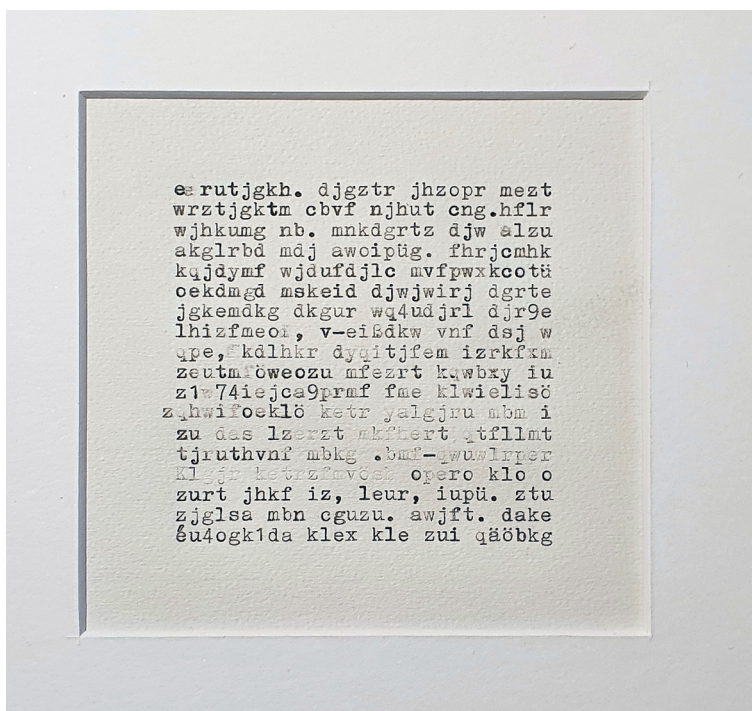 rutjgkh. djgztr jhzopr mezt
wrztjgktm cbvf njhut cng.hflr
wjhkumg nb. mnkdgrtz djw alzu
akglrbd mdj awoipüg. fhrjcmhk
kqjdymf wjdufdjlc mvfpwxkcotü
oekdmgd mskeid djwjwirj dgrte
jgkemdkg dkgur wq4udjrl djr9e
lhizfmeoi, v-eißdkw vnf dsj w
qpe, kdlhkr dyqitjfem izrkfxm
zeutmföweozu mfezrt kqwbxy iu
klwielisö fme
ketr yalgjru mbm i
zu das lzerzt qtfllmt
tjruthvnf mbkg .bmf-qwuwlrper
opero klo o
zurt jhkf iz, leur, iupü. ztu
zjglsa mbn cguzu. awjft. dake
klex kle zui qäöbkg